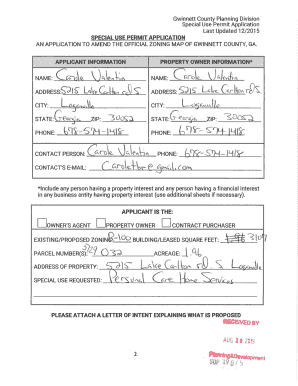 Gwinnett County Planning Division
Special Use Permit Application
Last Updated 12/2015
SPECIAL USE PERMIT APPLICATION
AN APPLICATION TO AMEND THE OFFICIAL ZONING MAP OF GWINNETT COUNTY, GA.
APPLICANT INFORMATION PROPERTY OWNER INFORMATION*
NAME: Carole Valentin NAME: Carole Valentin
ADDRESS: 5215 Lake Carlton rd S ADDRESS: 5215 Lake Carlton rd S
CITY: Loganville CITY: Loganville
STATE: Georgia ZIP: 30052 STATE: Georgia ZIP: 30052
PHONE: 678-574-1418 PHONE: 678-574-1418
CONTACT PERSON: Carole Valentin PHONE: 678-574-1418
CONTACT'S E-MAIL: @gmail.com
*Include any person having a property interest and any person having a financial interest
in any business entity having property interest (use additional sheets if necessary).
APPLICANT IS THE:
OWNER'S AGENT PROPERTY OWNER CONTRACT PURCHASER
EXISTING/PROPOSED ZONING: R-100 BUILDING/LEASED SQUARE FEET:
PARCEL NUMBER(S): 032 ACREAGE: 1.96
ADDRESS OF PROPERTY: 5215 Lake Carlton rd S Loganville
SPECIAL USE REQUESTED: Personal Care Home Services
PLEASE ATTACH A LETTER OF INTENT EXPLAINING WHAT IS PROPOSED
RECEIVED BY
AUG 28 2019
2
Planning&Development